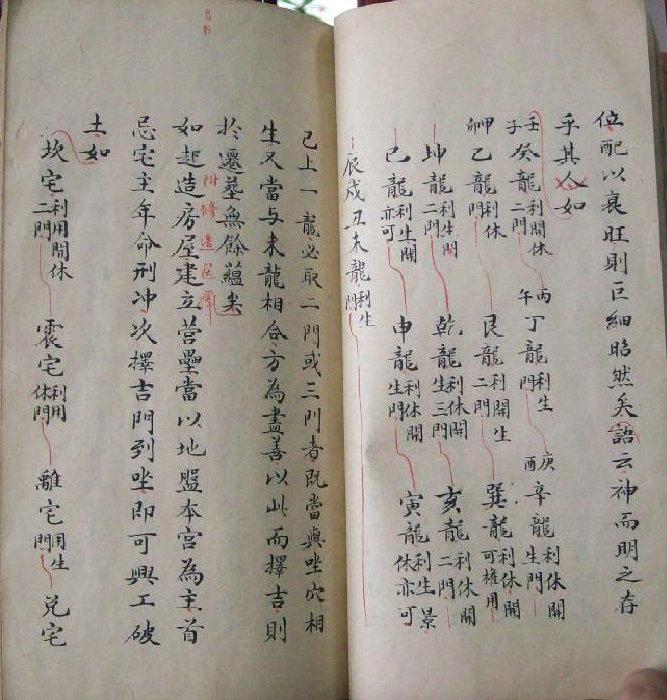 位配以衰旺則巨細昭然矣語云神而明之存
乎其人如
壬子癸龍利開休二門 丙午丁龍利生 庚酉辛龍利休開生門
甲卯乙龍利休門 艮龍利開生二門 巽龍利休開可權用
坤龍利生開二門 乾龍利休開生三門 亥龍利休開二門
巳龍利生開亦可 申龍利休開生門 寅龍利生景休亦可
辰戌丑未龍利生門
已上一龍必取二門或三門者既當與坐穴相
生又當与来龍相合方為盡善以此而擇吉則
於遷塟無餘蘊矣
附修造蓝擇
如起造房屋建立營壘當以地盤本宮為主首
忌宅主年命刑冲次擇吉門到坐即可興工破
土如
坎宅利用開休二門 震宅利用休門 離宅用生門 兌宅